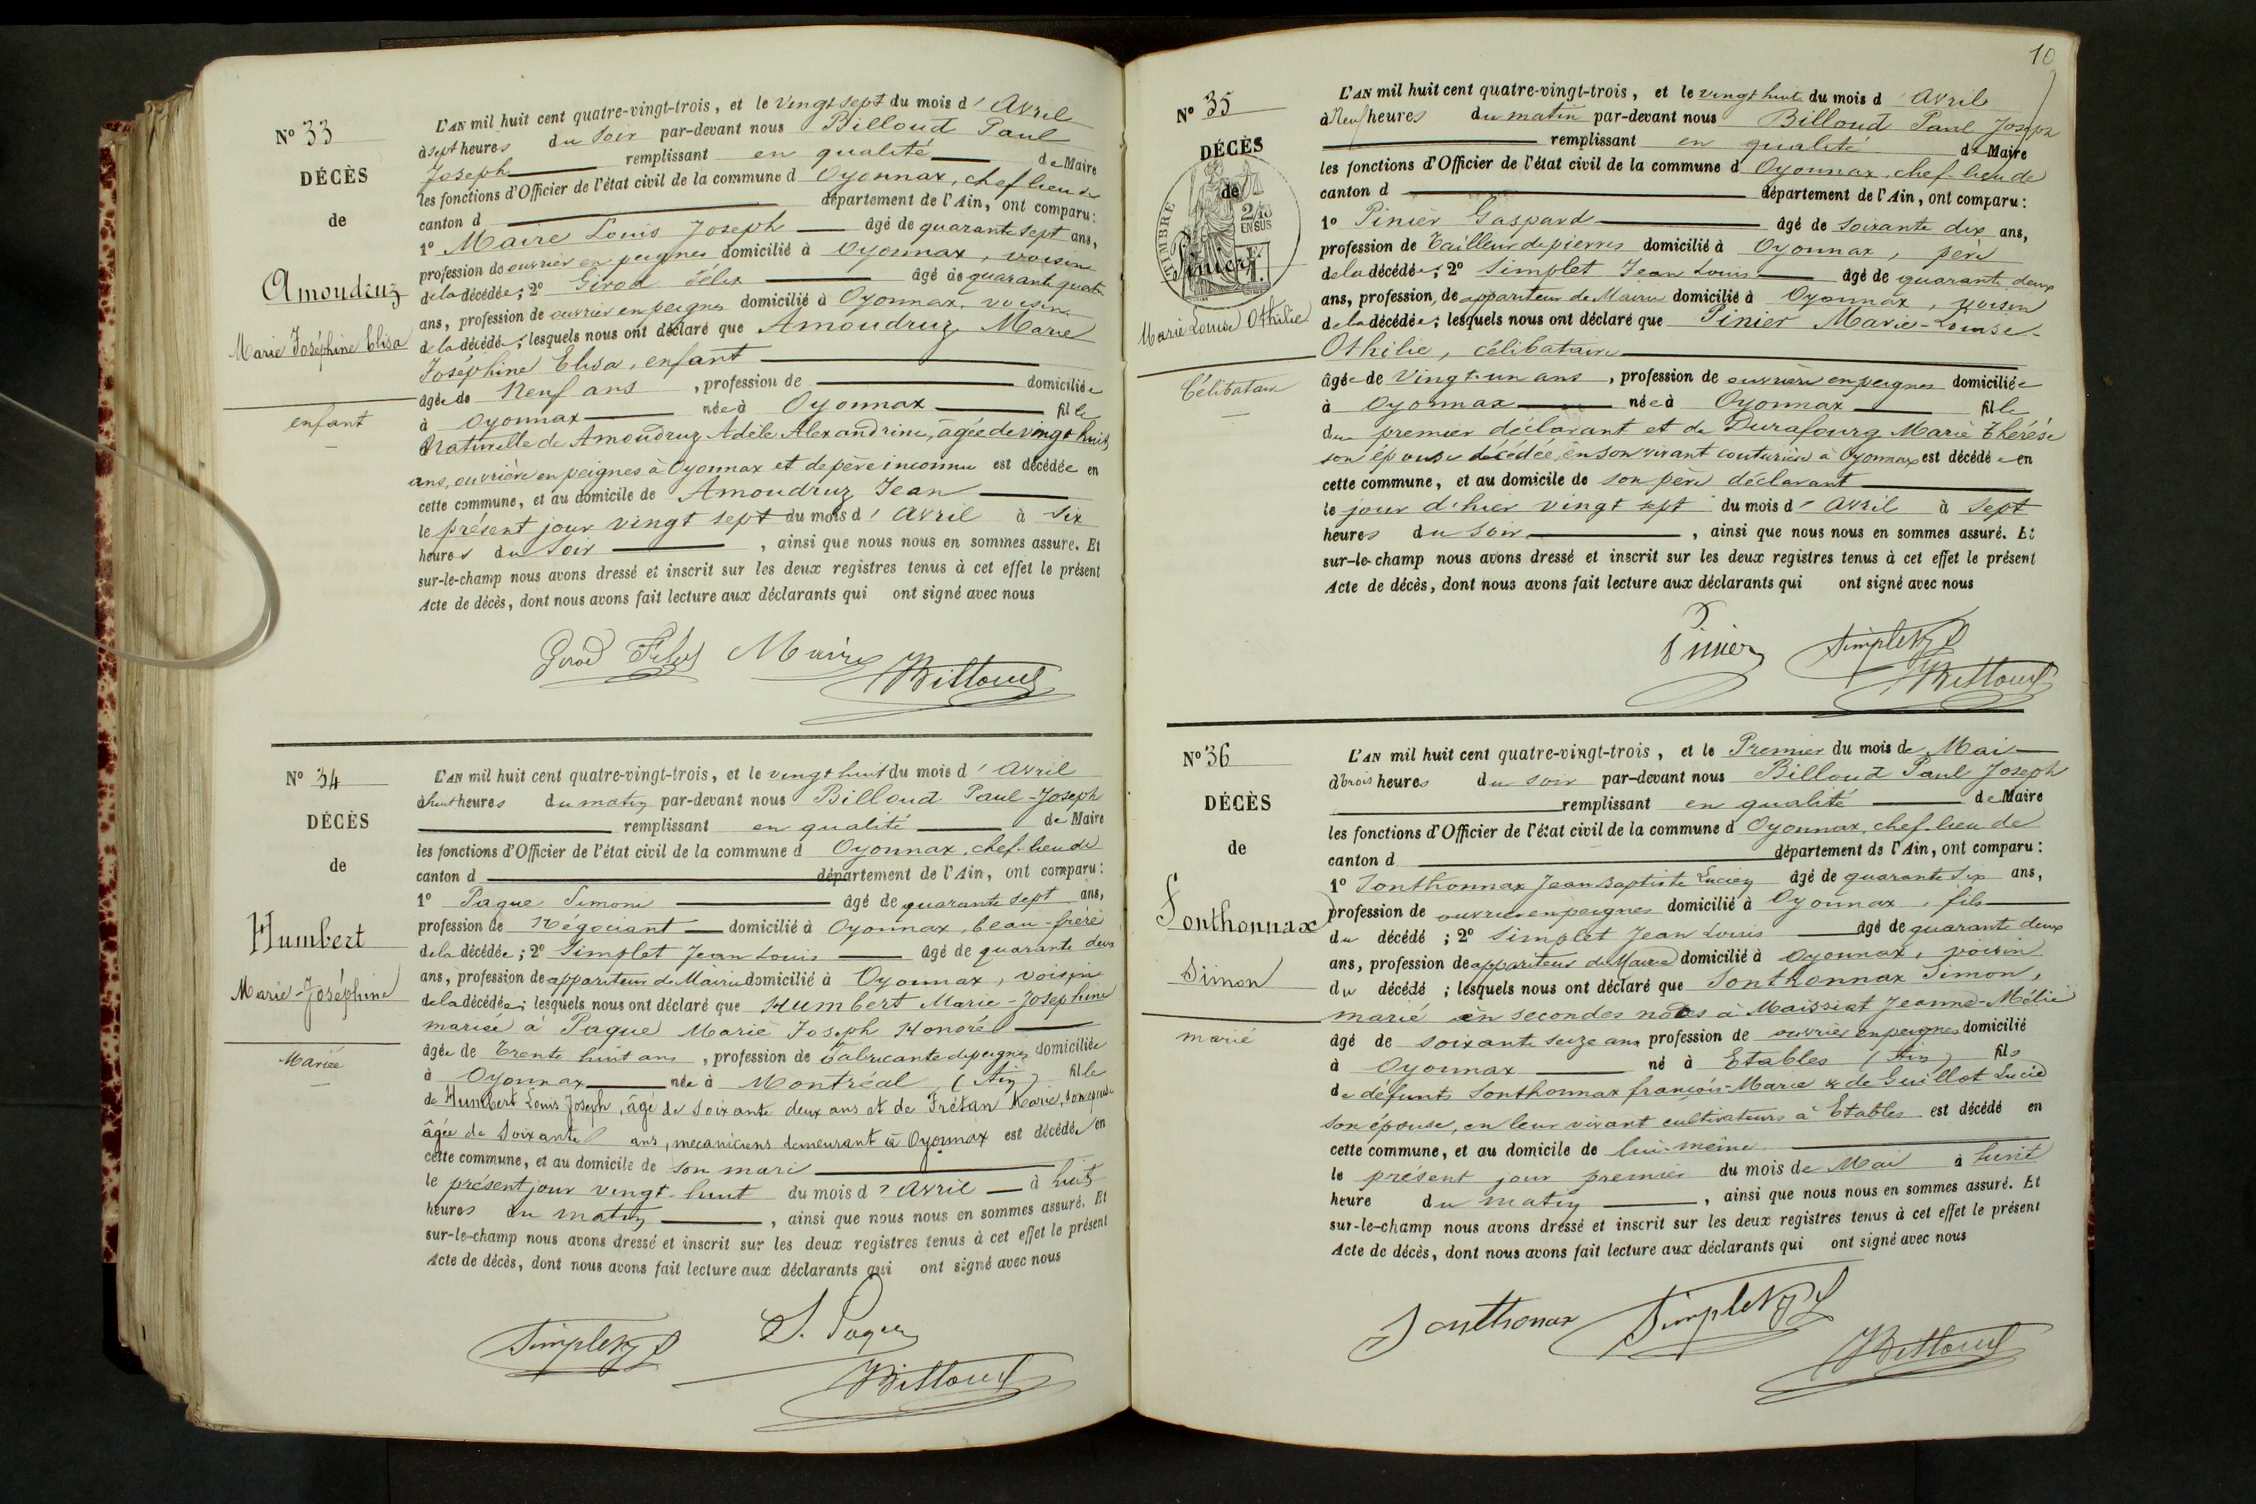 N° 33
DÉCÈS
de
Amoudruz
Marie Joséphine Elisa
enfant
L'AN mil huit cent quatre-vingt-trois, et le vingt sept du mois d'Avril
à sept heures du soir par-devant nous Billoud Paul
Joseph remplissant en qualité de Maire
les fonctions d'Officier de l'état civil de la commune d Oyonnax, chef lieu de
canton d département de l'Ain, ont comparu:
1° Maire Louis Joseph âgé de quarante sept ans,
profession de ouvrier en peignes domicilié à Oyonnax, voisin
de la décédée; 2° Girod Félix âgé de quarante quatre
ans, profession de ouvrier en peignes domicilié à Oyonnax, voisin
de la décédée; lesquels nous ont déclaré que Amoudruz Marie
Joséphine Elisa, enfant
âgée de Neuf ans, profession de domiciliée
à Oyonnax née à Oyonnax fille
Naturelle de Amoudruz Adèle Alexandrine, âgée de vingt huit
ans, ouvrière en peignes à Oyonnax et de père inconnu est décédée en
cette commune, et au domicile de Amoudruz Jean
le présent jour vingt sept du mois d'Avril à six
heures du soir, ainsi que nous nous en sommes assuré. Et
sur-le-champ nous avons dressé et inscrit sur les deux registres tenus à cet effet le présent
Acte de décès, dont nous avons fait lecture aux déclarants qui ont signé avec nous
Girod Félix Maire
Billoud
N° 34
DÉCÈS
de
Humbert
Marie-Joséphine
Mariée
L'AN mil huit cent quatre-vingt-trois, et le vingt huit du mois d'Avril
à huit heures du matin par-devant nous Billoud Paul-Joseph
remplissant en qualité de Maire
les fonctions d'Officier de l'état civil de la commune d Oyonnax, chef-lieu de
canton d département de l'Ain, ont comparu:
1° Paque Simon âgé de quarante sept ans,
profession de Négociant domicilié à Oyonnax, beau-frère
de la décédée; 2° Simplet Jean Louis âgé de quarante deux
ans, profession de appariteur de Mairie domicilié à Oyonnax, voisin
de la décédée; lesquels nous ont déclaré que Humbert Marie-Joséphine
mariée à Paque Marie Joseph Honoré
âgée de Trente huit ans, profession de Fabricante de peignes domiciliée
à Oyonnax née à Montréal (Ain) fille
de Humbert Louis Joseph, âgé de soixante deux ans et de Frétan Marie, son épouse
âgée de soixante ans, mecaniciens demeurant à Oyonnax est décédée en
cette commune, et au domicile de son mari
le présent jour vingt-huit du mois d'Avril à huit
heures du matin, ainsi que nous nous en sommes assuré. Et
sur-le-champ nous avons dressé et inscrit sur les deux registres tenus à cet effet le présent
Acte de décès, dont nous avons fait lecture aux déclarants qui ont signé avec nous
Simplet S. Paque
Billoud
10
N° 35
DÉCÈS
de
TIMBRE
2/10
EN SUS
Pinier
Marie Louise Othilie
Célibataire
L'AN mil huit cent quatre-vingt-trois, et le vingt huit du mois d'Avril
à Neuf heures du matin par-devant nous Billoud Paul Joseph
remplissant en qualité de Maire
les fonctions d'Officier de l'état civil de la commune d Oyonnax, chef-lieu de
canton d département de l'Ain, ont comparu:
1° Pinier Gaspard âgé de soixante dix ans,
profession de Tailleur de pierres domicilié à Oyonnax, père
de la décédée; 2° Simplet Jean Louis âgé de quarante deux
ans, profession de appariteur de Mairie domicilié à Oyonnax, voisin
de la décédée; lesquels nous ont déclaré que Pinier Marie-Louise-
Othilie, célibataire
âgée de Vingt-un ans, profession de ouvrière en peignes domiciliée
à Oyonnax née à Oyonnax fille
du premier déclarant et de Durafourg Marie Thérèse
son épouse décédée, en son vivant couturière à Oyonnax est décédée en
cette commune, et au domicile de son père déclarant
le jour d'hier vingt sept du mois d'Avril à sept
heures du soir, ainsi que nous nous en sommes assuré. Et
sur-le-champ nous avons dressé et inscrit sur les deux registres tenus à cet effet le présent
Acte de décès, dont nous avons fait lecture aux déclarants qui ont signé avec nous
Pinier Simplet
Billoud
N° 36
DÉCÈS
de
Sonthonnax
Simon
marié
L'AN mil huit cent quatre-vingt-trois, et le Premier du mois de Mai
à trois heures du soir par-devant nous Billoud Paul Joseph
remplissant en qualité de Maire
les fonctions d'Officier de l'état civil de la commune d Oyonnax, chef-lieu de
canton d département de l'Ain, ont comparu:
1° Sonthonnax Jean Baptiste Lucien âgé de quarante six ans,
profession de ouvrier en peignes domicilié à Oyonnax, fils
du décédé; 2° Simplet Jean Louis âgé de quarante deux
ans, profession de appariteur de Mairie domicilié à Oyonnax, voisin
du décédé; lesquels nous ont déclaré que Sonthonnax Simon,
marié en secondes noces à Maissiat Jeanne-Mélie
âgé de soixante seize ans profession de ouvrier en peignes domicilié
à Oyonnax né à Etables (Ain) fils
de défunts Sonthonnax françois-Marie & de Guillot Lucie
son épouse, en leur vivant cultivateurs à Etables est décédé en
cette commune, et au domicile de lui-même
le présent jour premier du mois de Mai à huit
heure du matin, ainsi que nous nous en sommes assuré. Et
sur-le-champ nous avons dressé et inscrit sur les deux registres tenus à cet effet le présent
Acte de décès, dont nous avons fait lecture aux déclarants qui ont signé avec nous
Sonthonax Simplet
Billoud